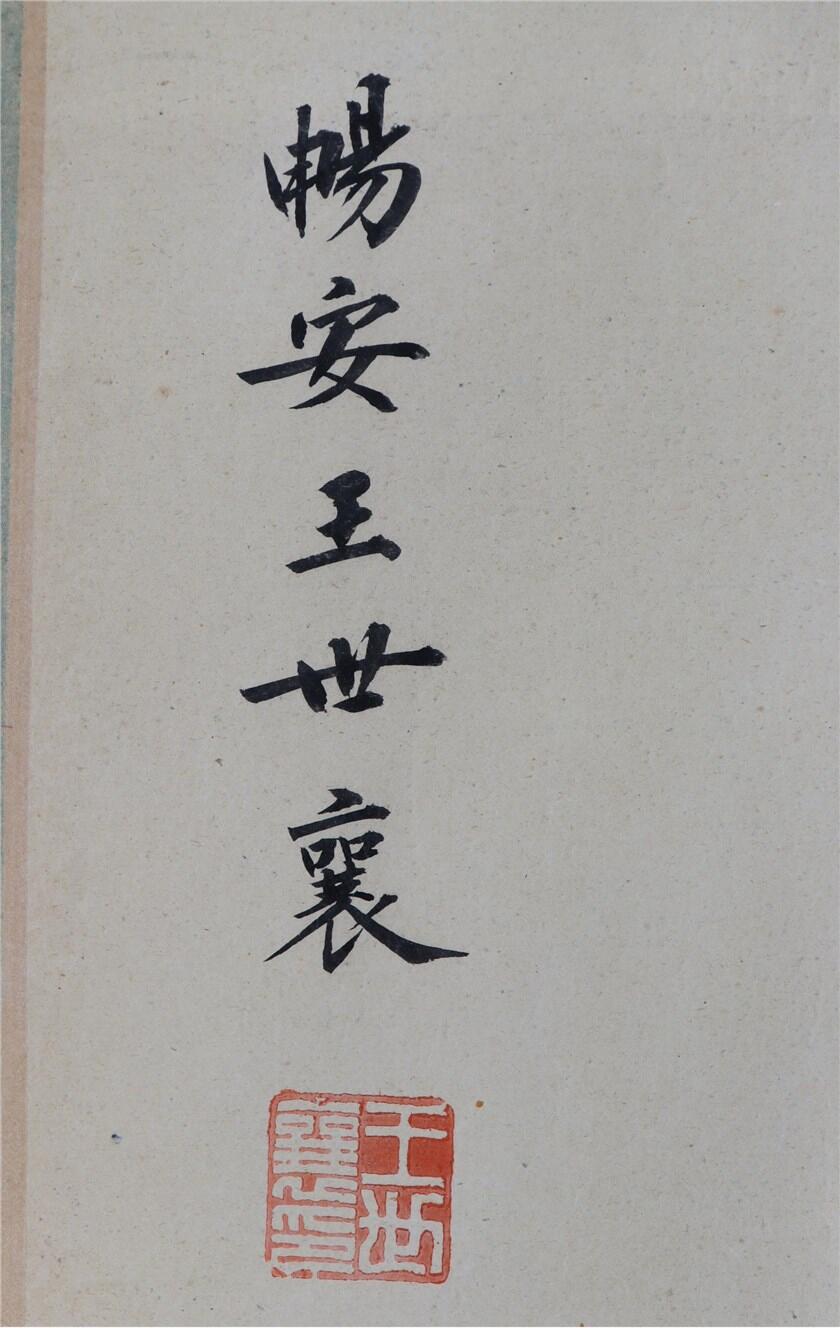 暢安王世襄
王世
襄印